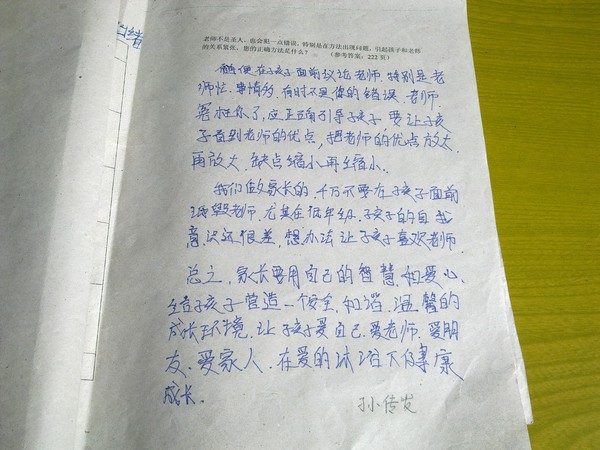 绪
老师不是圣人，也会犯一点错误，特别是在方法出现问题，引起孩子和老师
的关系紧张，您的正确方法是什么？（参考答案：222页）
随便在孩子面前议论老师，特别是老
师忙、事情多，有时不是你的错误，老师
冤枉你了，应正确引导孩子，要让孩
子看到老师的优点，把老师的优点放大
再放大，缺点缩小再缩小。
我们做家长的，千万不要在孩子面前
诋毁老师，尤其在低年级，孩子的自我
意识还很差，想办法让孩子喜欢老师
总之，家长要用自己的智慧和爱心，
给孩子营造一个安全、和谐、温馨的
成长环境，让孩子爱自己、爱老师、爱朋
友、爱家人，在爱的沐浴下健康
成长。
孙传发